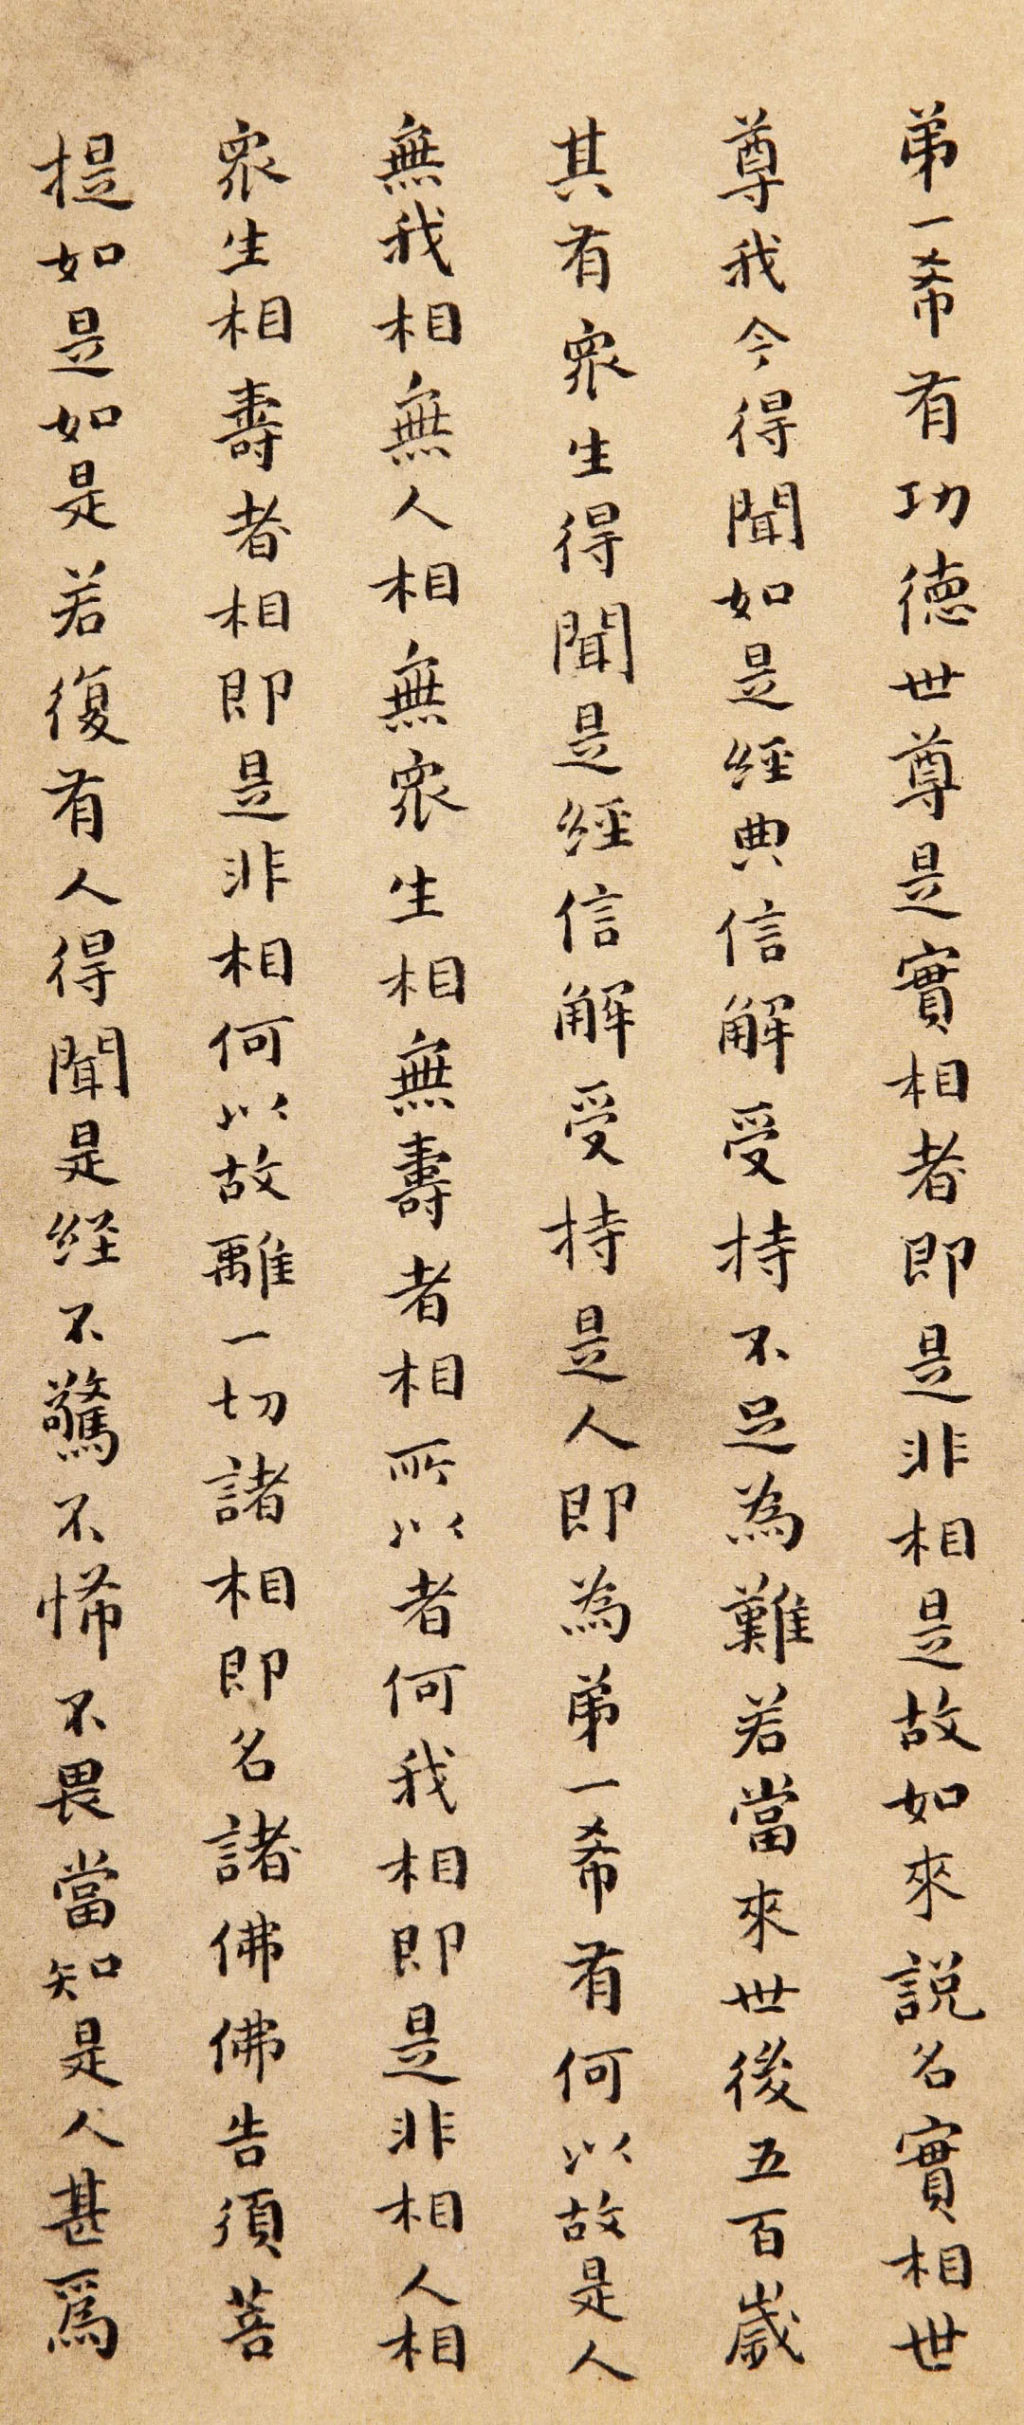 弟一希有功德世尊是實相者即是非相是故如來説名實相世
尊我今得聞如是經典信解受持不足為難若當來世後五百歲
其有眾生得聞是經信解受持是人即為弟一希有何以故是人
無我相無人相無眾生相無壽者相所以者何我相即是非相人相
眾生相壽者相即是非相何以故離一切諸相即名諸佛佛告須菩
提如是如是若復有人得聞是経不驚不怖不畏當知是人甚爲